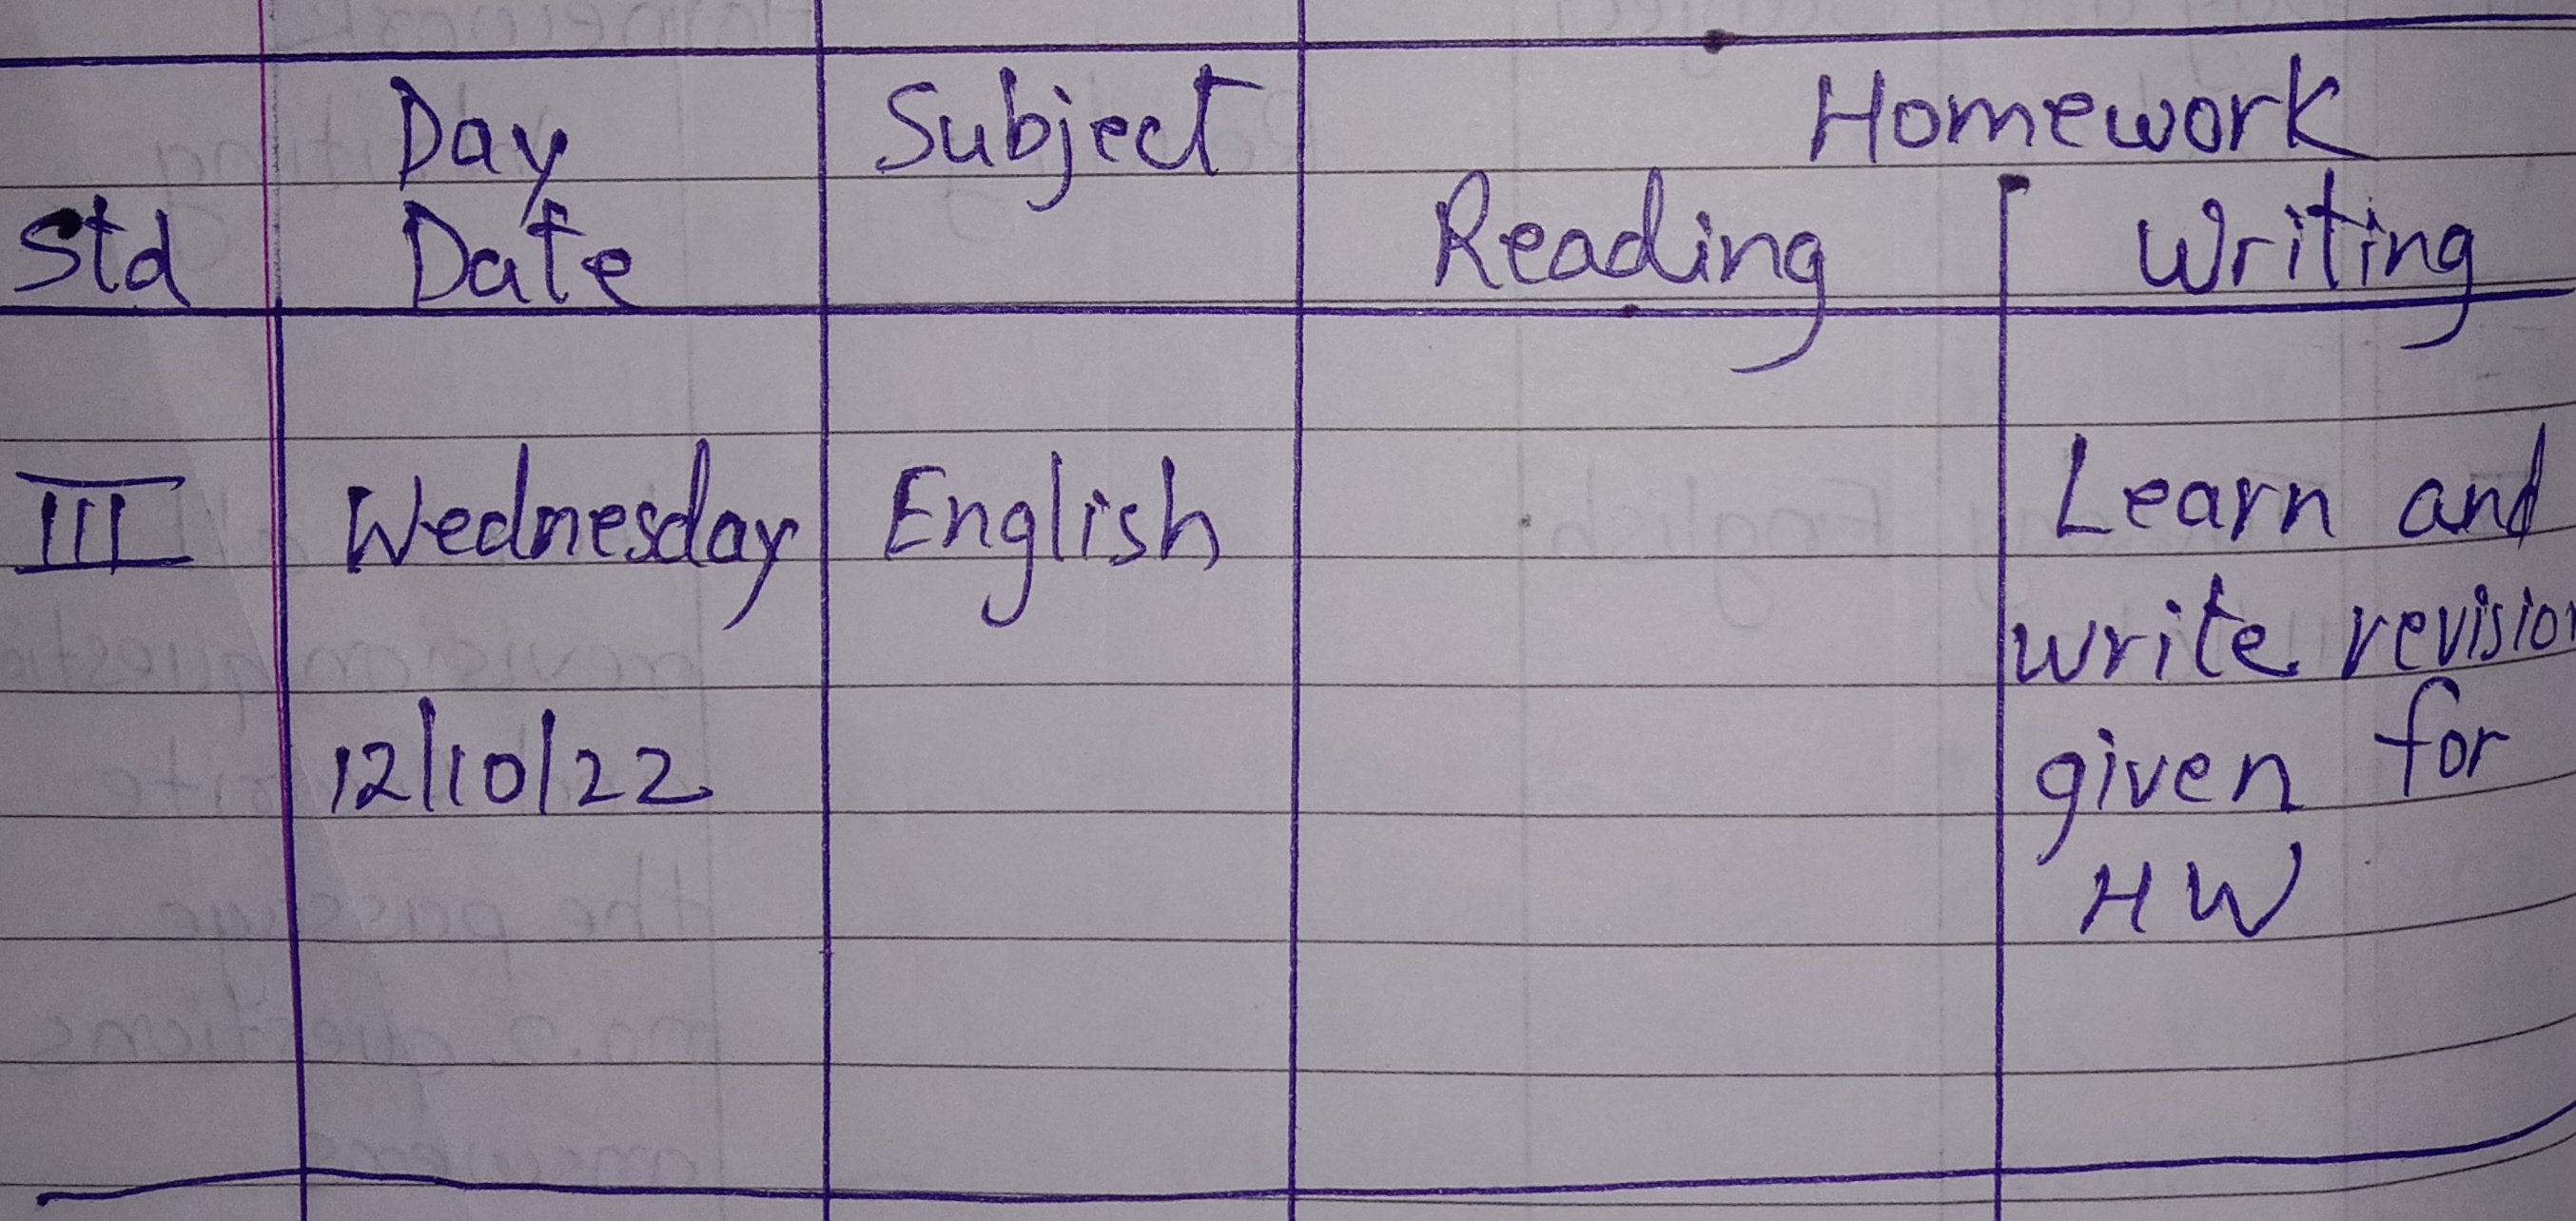 Homework
Day Subject
Std Date Reading Writing
III Wednesday English Learn and
write revision
12/10/22 given for
HW